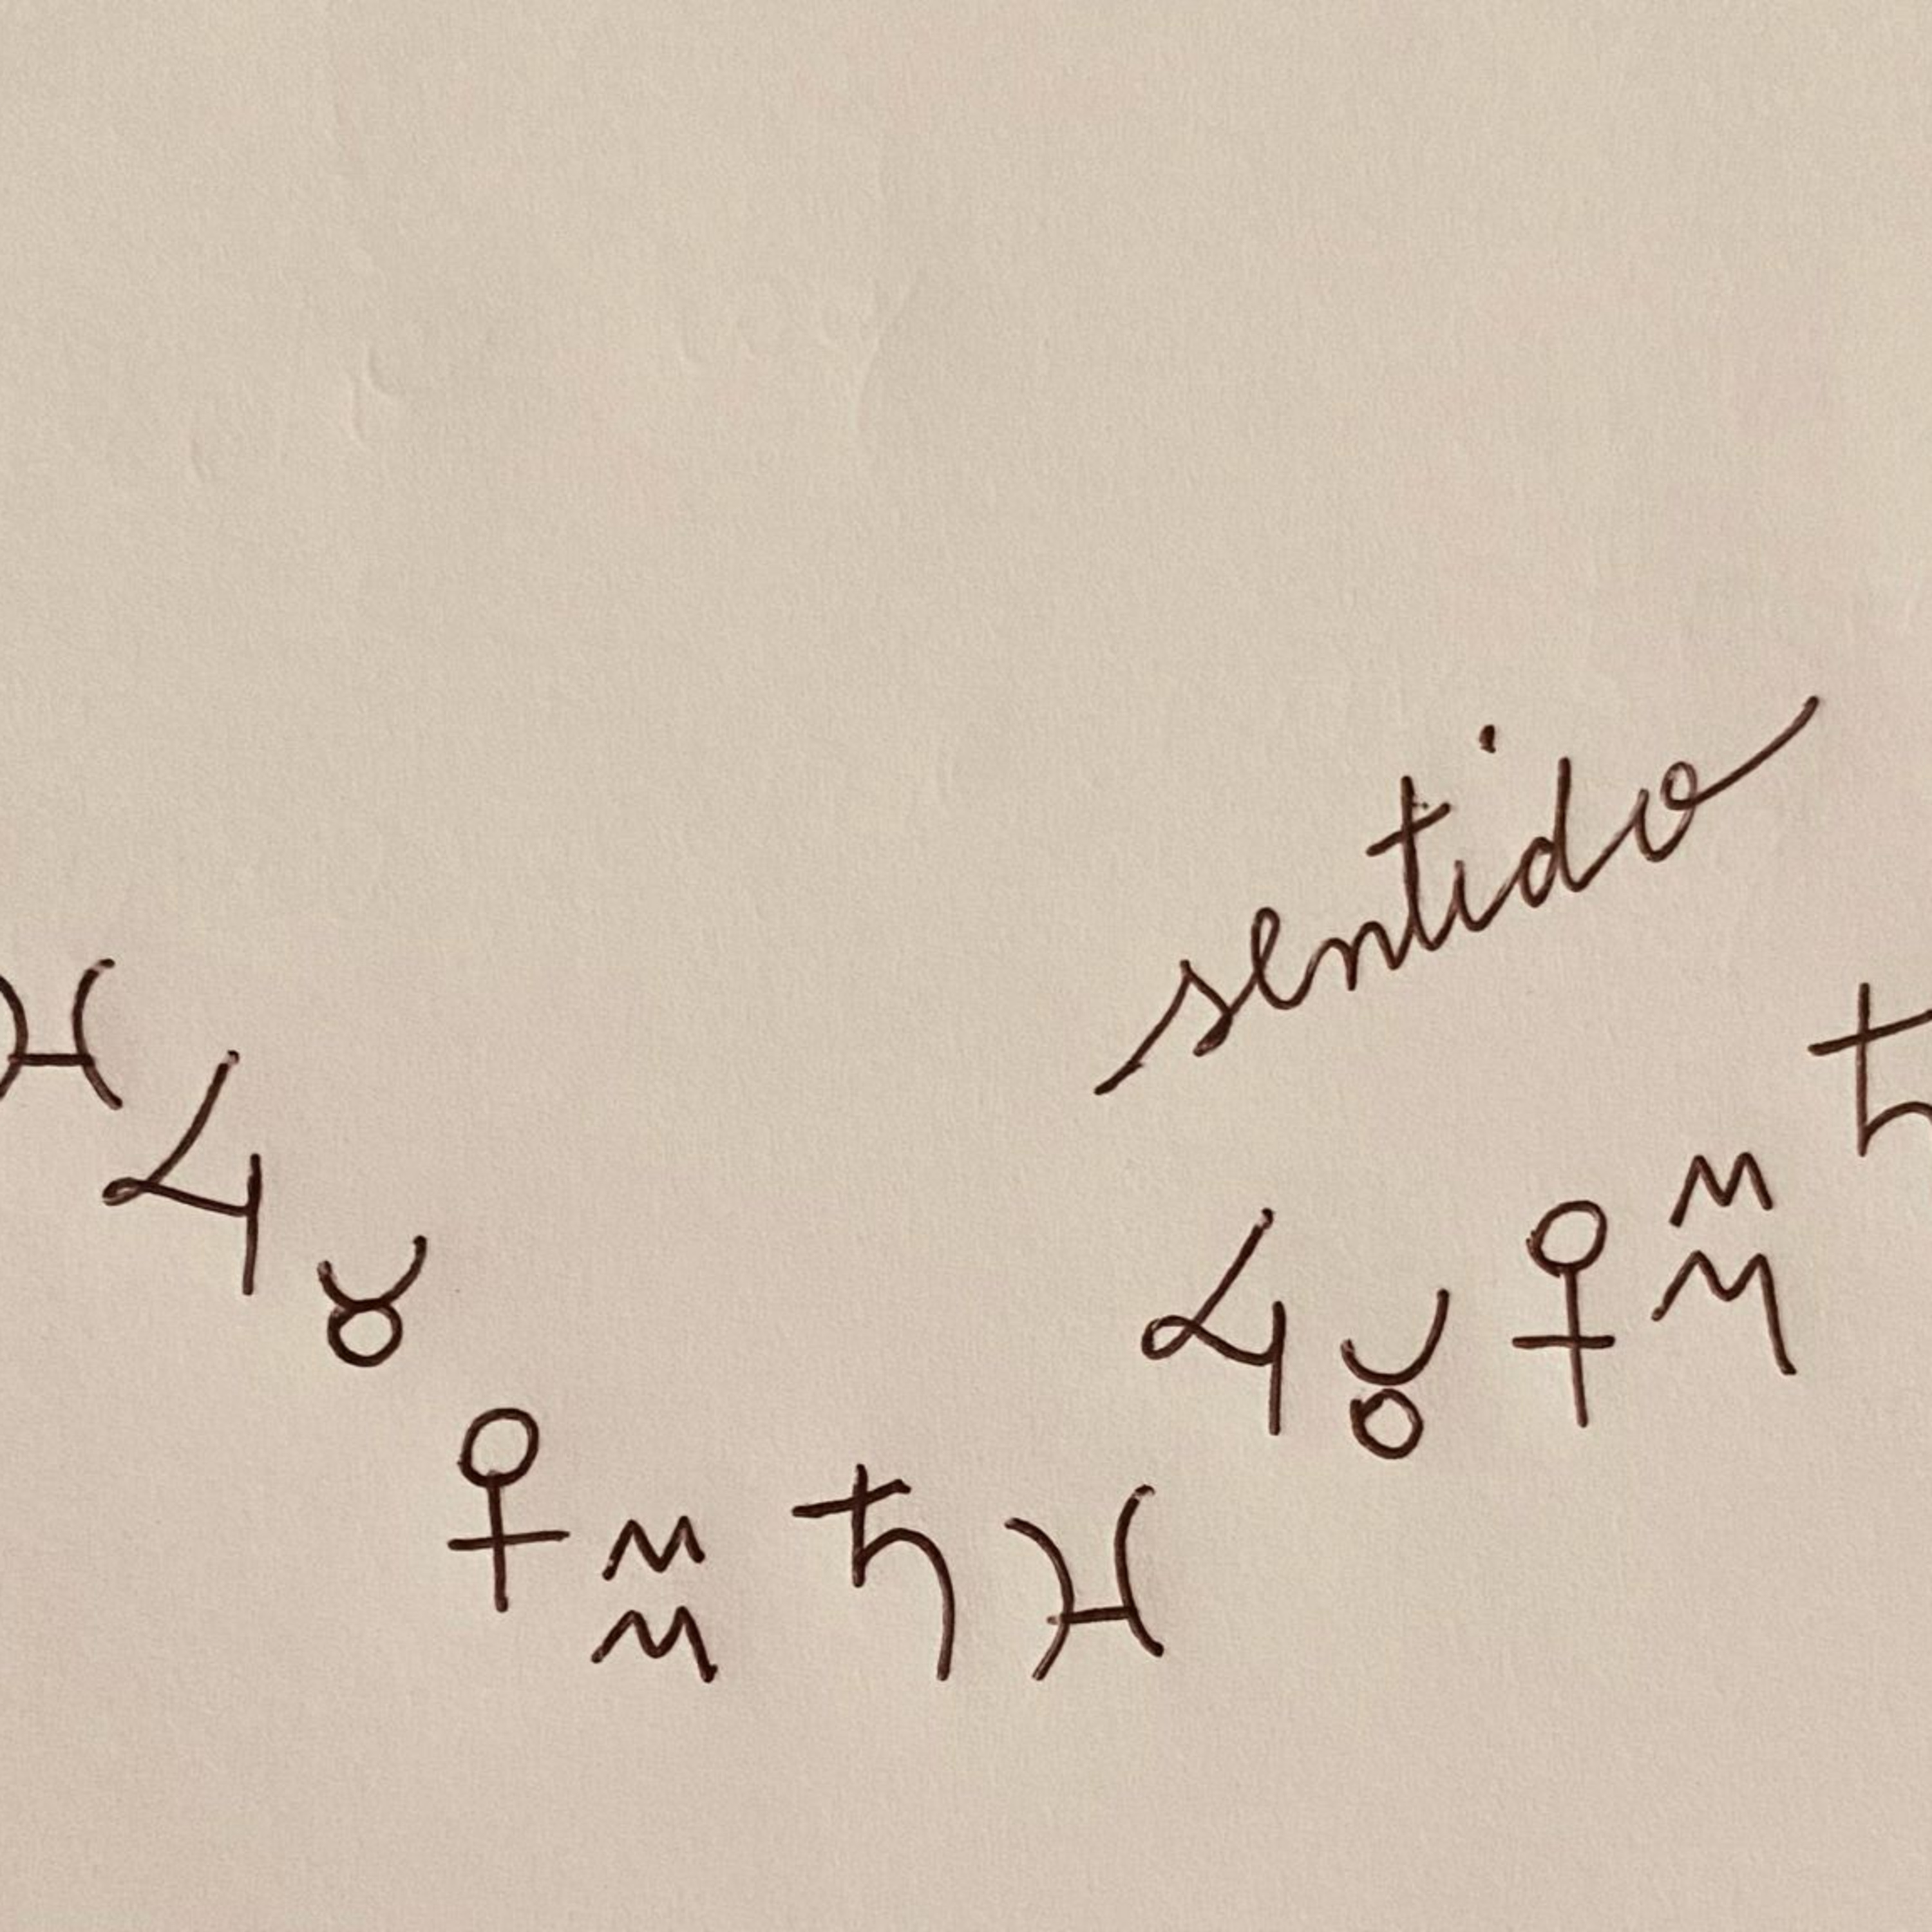 sentido
♓ ♃ ♉ ♀ ♒ ♄ ♓ ♃ ♉ ♀ ♒ ♄